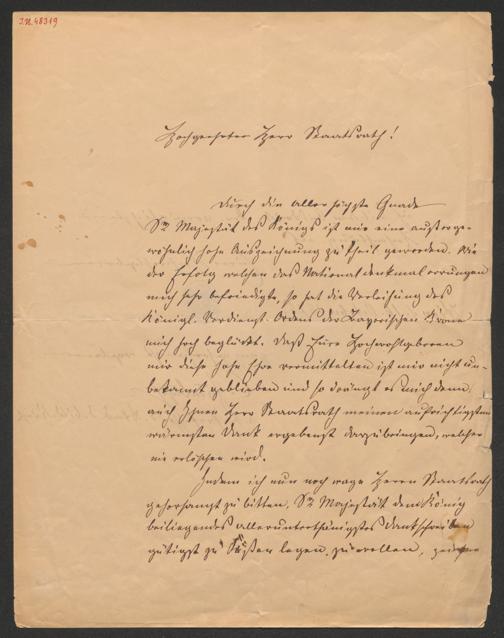 I.N. 48319
Hochgeehrter Herr Staatsrath!
Durch die allerhöchste Gnade
Sr Majestät des Königs ist mir eine außerge-
wöhnlich hohe Auszeichnung zu theil geworden. Wie
der Erfolg welchen das Nationaldenkmal errungen
mich sehr befriedigte, so hat die Verleihung des
Königl. Verdienst-Ordens der Bayerischen Krone
mich hoch beglückt. Daß Eure Hochwohlgeboren
mir diese hohe Ehre vermittelten ist mir nicht un-
bekannt geblieben und so drängt es mich denn
auch Ihnen Herr Staatsrath meinen aufrichtigsten
wärmsten Dank ergebenst darzubringen, welcher
nie erlöschen wird.
Indem ich nun noch wage Herrn Staatsrath
gehorsamst zu bitten, Sr Majestät dem König
beiliegendes allerunterthänigstes Dankschreiben
gütigst zu Füßen legen zu wollen,